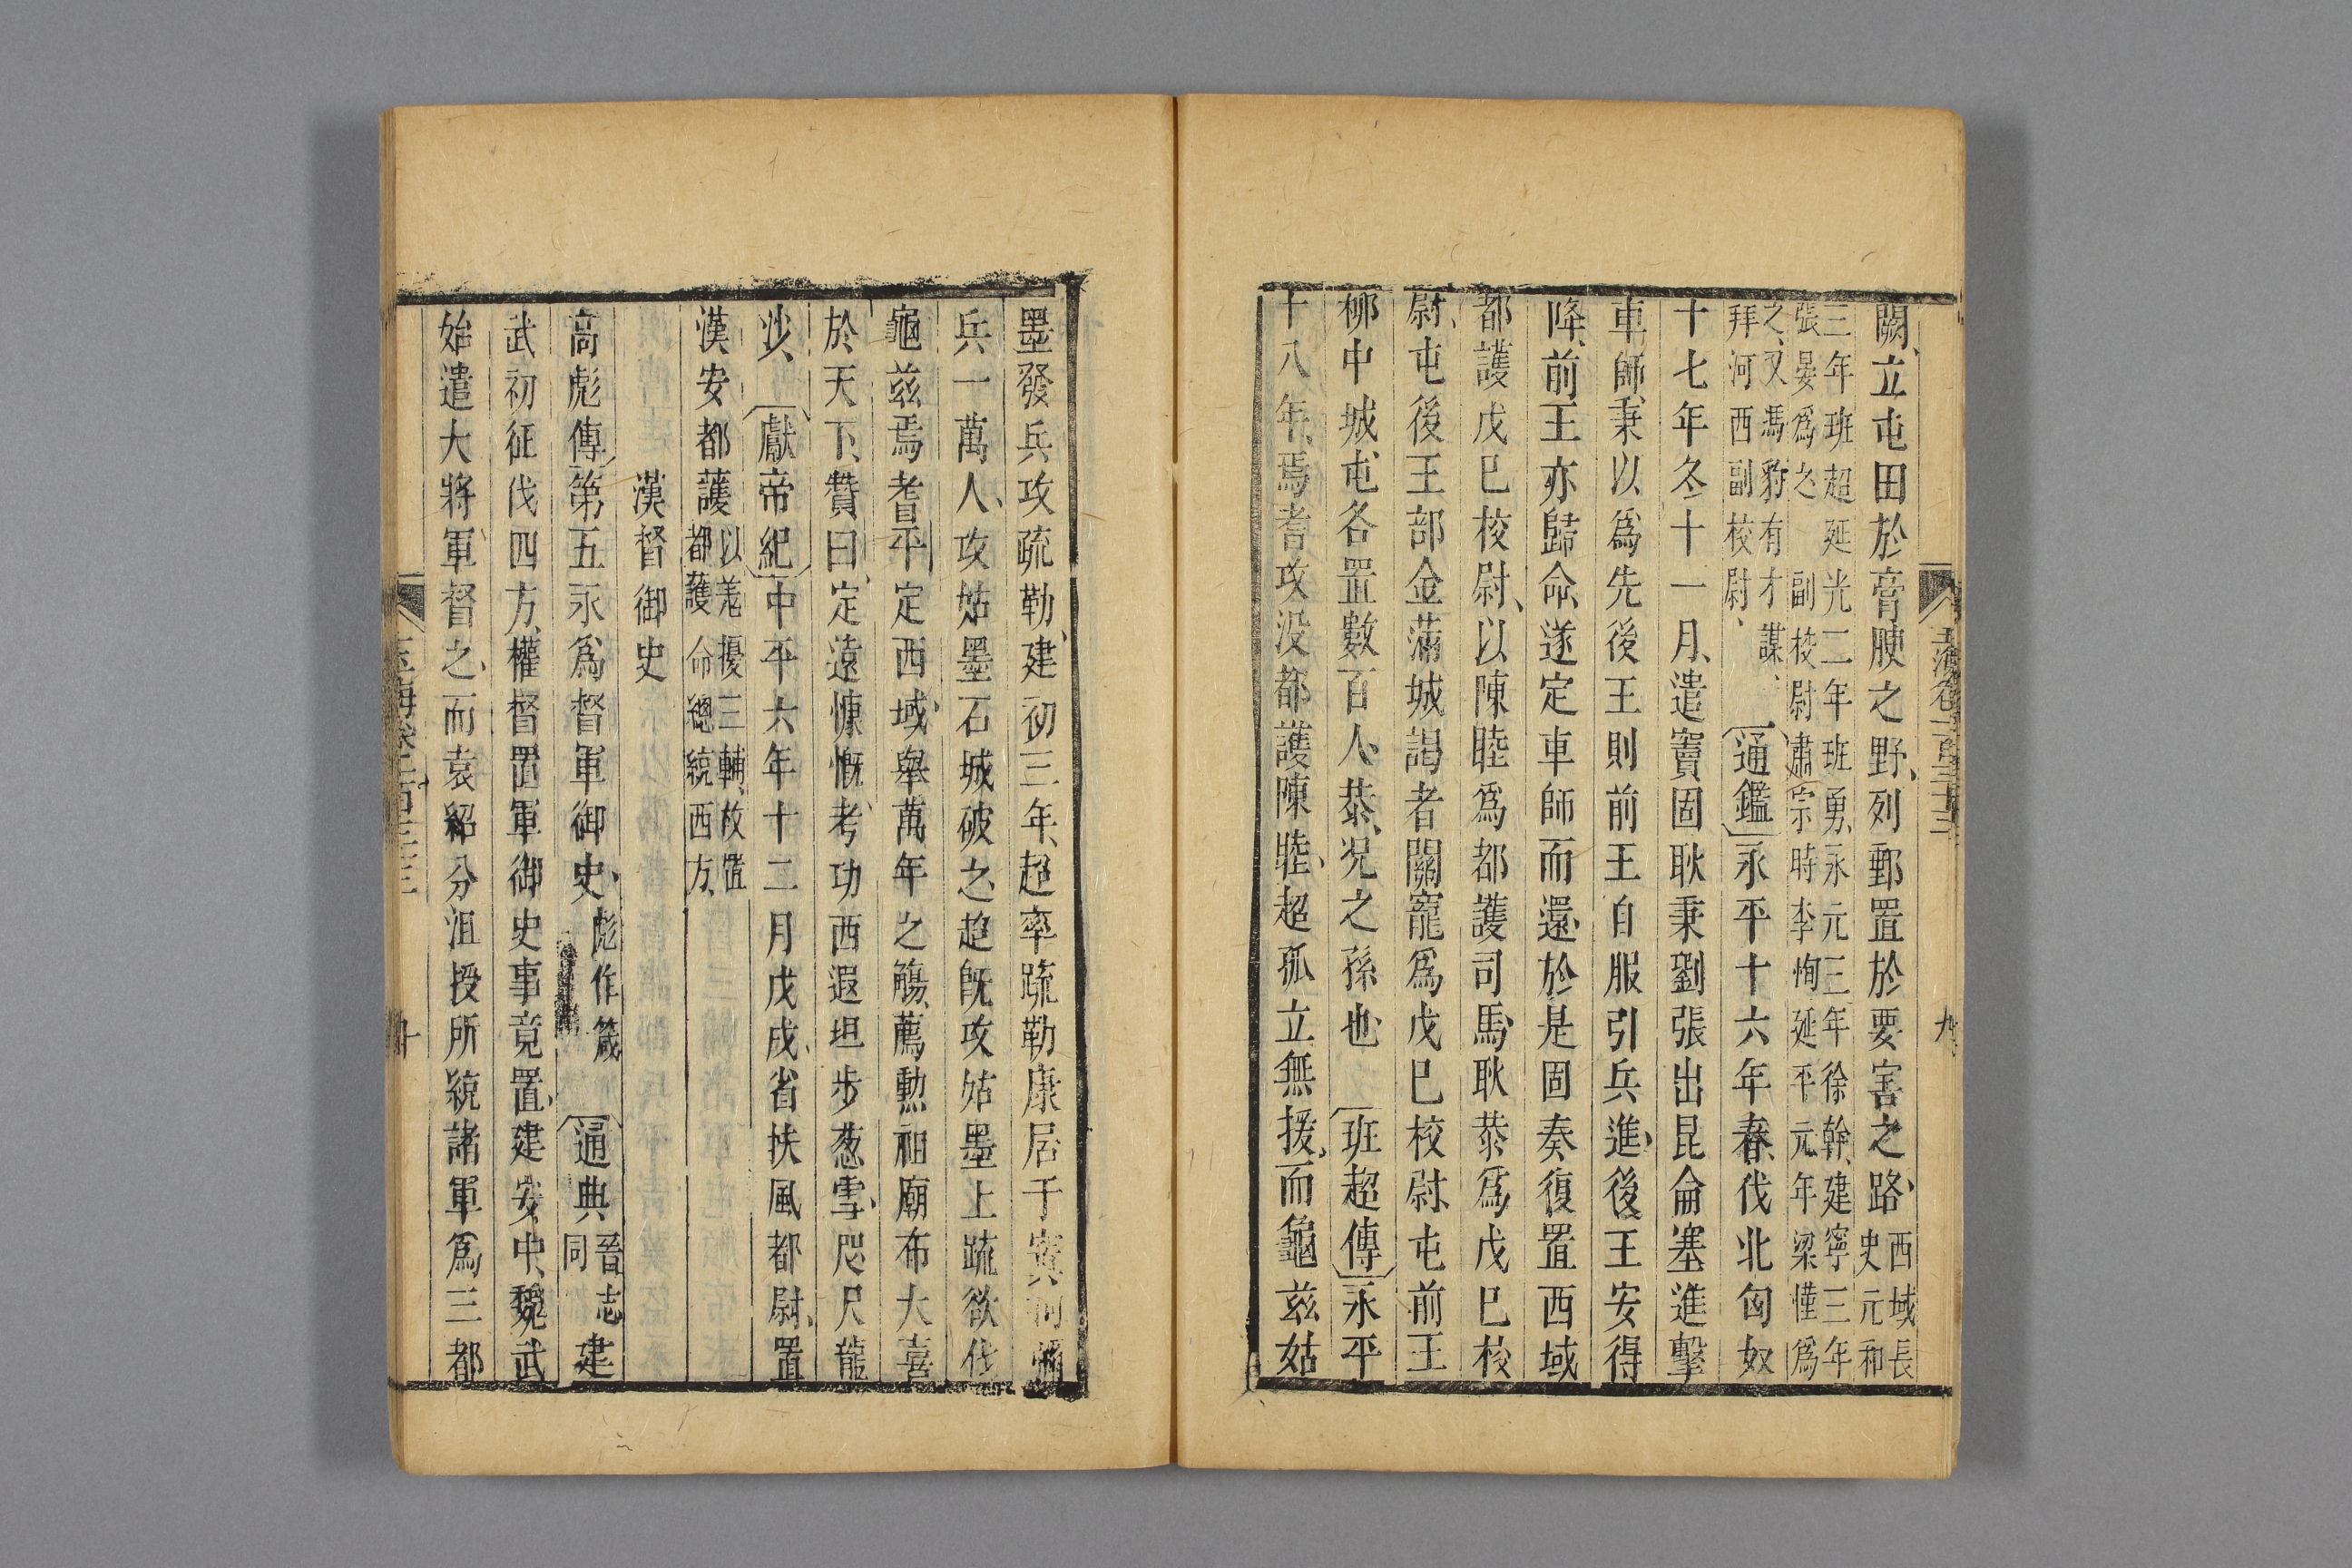 玉海卷一百三十三
九
闕、立屯田於膏腴之野、列郵置於要害之路、西域長史元和
三年班超延光二年班勇、永元三年徐幹、建寧三年
張晏爲之副校尉肅宗時李恂延平元年梁慬爲
之、又馮豹有才謀、拜河西副校尉、通鑑永平十六年春、伐北匈奴
十七年冬十一月、遣竇固耿秉劉張出昆侖塞進擊
車師、秉以爲先後王則前王自服引兵進、後王安得
降、前王亦歸命、遂定車師而還、於是固奏復置西域
都護戊巳校尉、以陳睦爲都護司馬、耿恭爲戊巳校
尉、屯後王部金蒲城謁者關寵爲戊巳校尉、屯前王
柳中城、屯各置數百人、恭、况之孫也、班超傳永平
十八年、焉耆攻没都護陳睦、超孤立無援、而龜茲姑
墨發兵攻疏勒、建初三年、超率疏勒康居于寘
兵一萬人、攻姑墨石城破之、超旣攻姑墨上疏欲伐
龜茲焉耆平定西域、舉萬年之觴、薦勲祖廟布大喜
於天下、贊曰、定遠慷慨、考功西遐坦步葱雪、咫尺龍
沙、獻帝紀中平六年十二月戊戌、省扶風都尉、置
漢安都護以羗擾三輔、故置都護命總統西方、
漢督御史
高彪傳第五永爲督軍御史、彪作箴通典晉志同建
武初征伐四方、權督置軍御史事竟置、建安中、魏武
始遣大將軍督之、而袁紹分沮授所統諸軍爲三都
玉海卷一百三十三
十